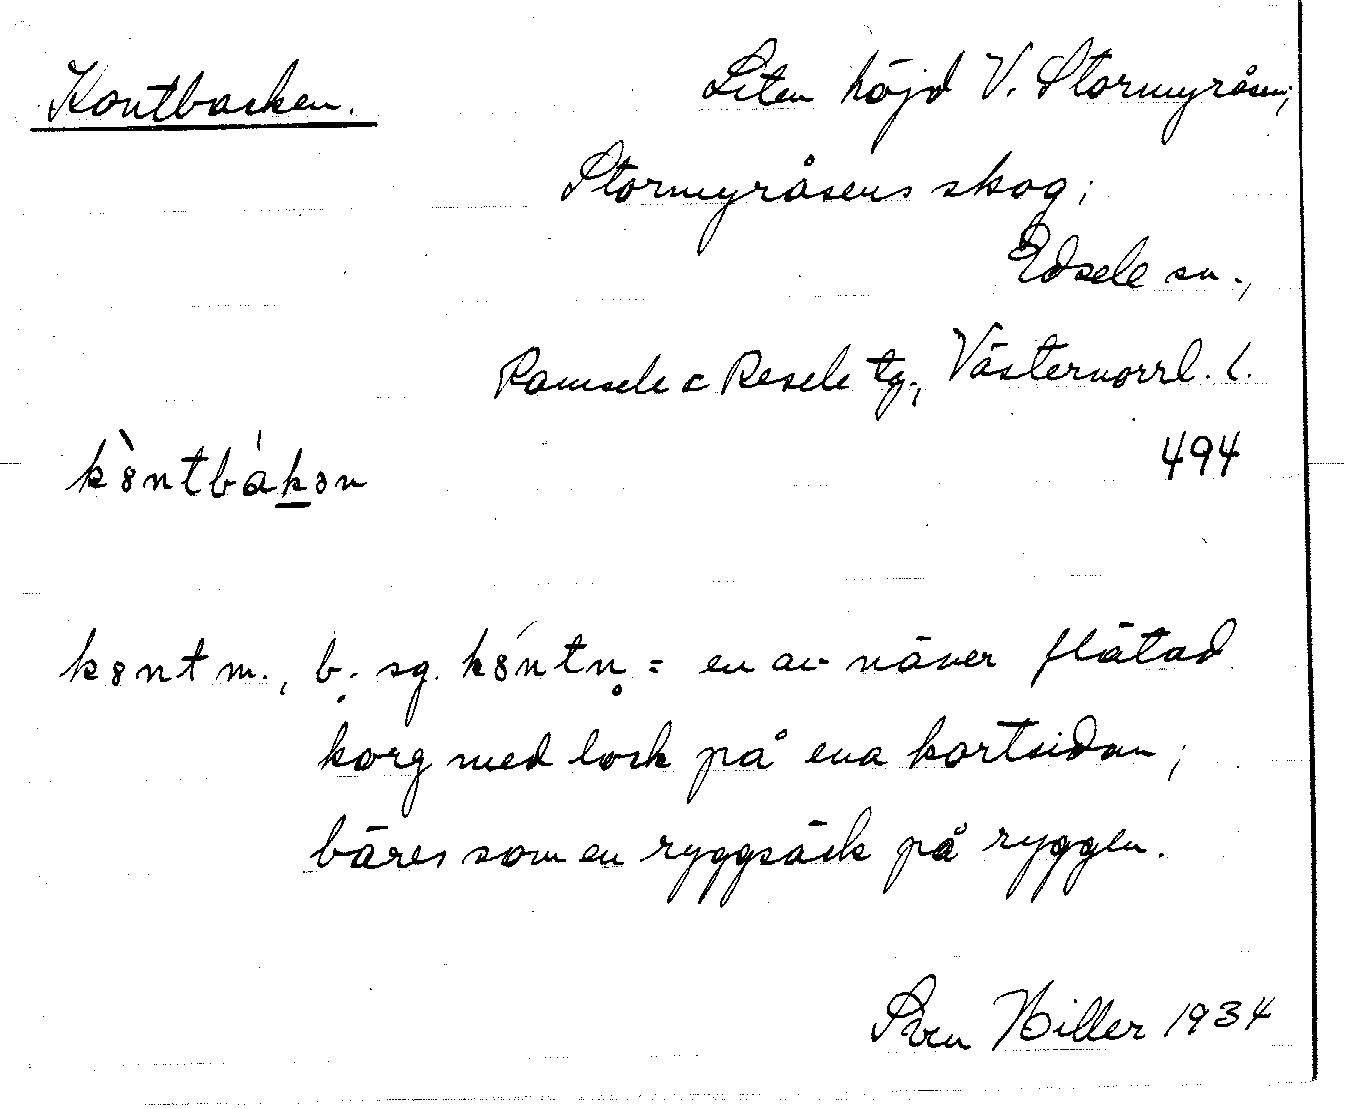 Kontbacken. Liten höjd V. Stormyråsen;
Stormyråsens skog;
Edsele sn.,
Ramsele o Resele tg., Västernorrl. l.
494
kòntbákən
kont m., b. sg. kóntn̥ = en av näver flätad
korg med lock på ena kortsidan;
bäres som en ryggsäck på ryggen.
Sven Hiller 1934